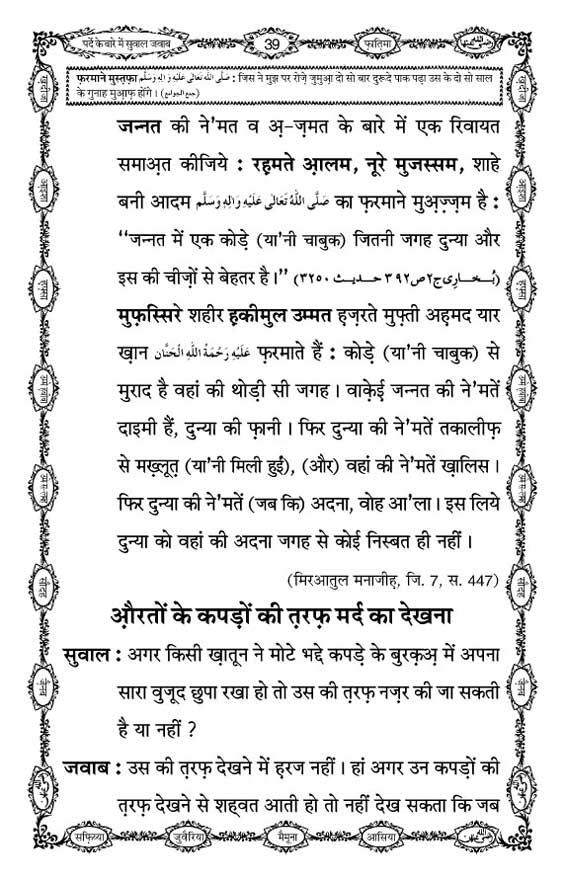 पर्दे के बारे में सुवाल जवाब
39
फ़ातिमा
फ़रमाने मुस्तफ़ा صَلَّى اللّٰهُ تَعَالٰى عَلَيْهِ وَاٰلِهٖ وَسَلَّم : जिस ने मुझ पर रोज़े जुमुआ़ दो सो बार दुरूदे पाक पढ़ा उस के दो सो साल
के गुनाह मुआ़फ़ होंगे । (جمع الجوامع)
जन्नत की ने'मत व अ़-ज़मत के बारे में एक रिवायत
समाअ़त कीजिये : रह़मते आ़लम, नूरे मुजस्सम, शाहे
बनी आदम صَلَّى اللّٰهُ تَعَالٰى عَلَيْهِ وَاٰلِهٖ وَسَلَّم का फ़रमाने मुअ़ज़्ज़म है :
“जन्नत में एक कोड़े (या'नी चाबुक) जितनी जगह दुन्या और
इस की चीज़ों से बेहतर है ।” (بُخارِی ج٢ص٣٩٢ حدیث ٣٢٥٠)
मुफ़स्सिरे शहीर ह़कीमुल उम्मत ह़ज़रते मुफ़्ती अह़मद यार
ख़ान عَلَيْهِ رَحْمَةُ اللّٰهِ الْحَنَّان फ़रमाते हैं : कोड़े (या'नी चाबुक) से
मुराद है वहां की थोड़ी सी जगह । वाक़ेई जन्नत की ने'मतें
दाइमी हैं, दुन्या की फ़ानी । फिर दुन्या की ने'मतें तकालीफ़
से मख़्लूत़ (या'नी मिली हुई), (और) वहां की ने'मतें ख़ालिस ।
फिर दुन्या की ने'मतें (जब कि) अदना, वोह आ'ला । इस लिये
दुन्या को वहां की अदना जगह से कोई निस्बत ही नहीं ।
(मिरआतुल मनाजीह़, जि. 7, स. 447)
औ़रतों के कपड़ों की त़रफ़ मर्द का देखना
सुवाल : अगर किसी ख़ातून ने मोटे भद्दे कपड़े के बुरक़अ़ में अपना
सारा वुजूद छुपा रखा हो तो उस की त़रफ़ नज़र की जा सकती
है या नहीं ?
जवाब : उस की त़रफ़ देखने में हरज नहीं । हां अगर उन कपड़ों की
त़रफ़ देखने से शह्वत आती हो तो नहीं देख सकता कि जब
सफ़िय्या
जुवैरिया
मैमूना
आसिया